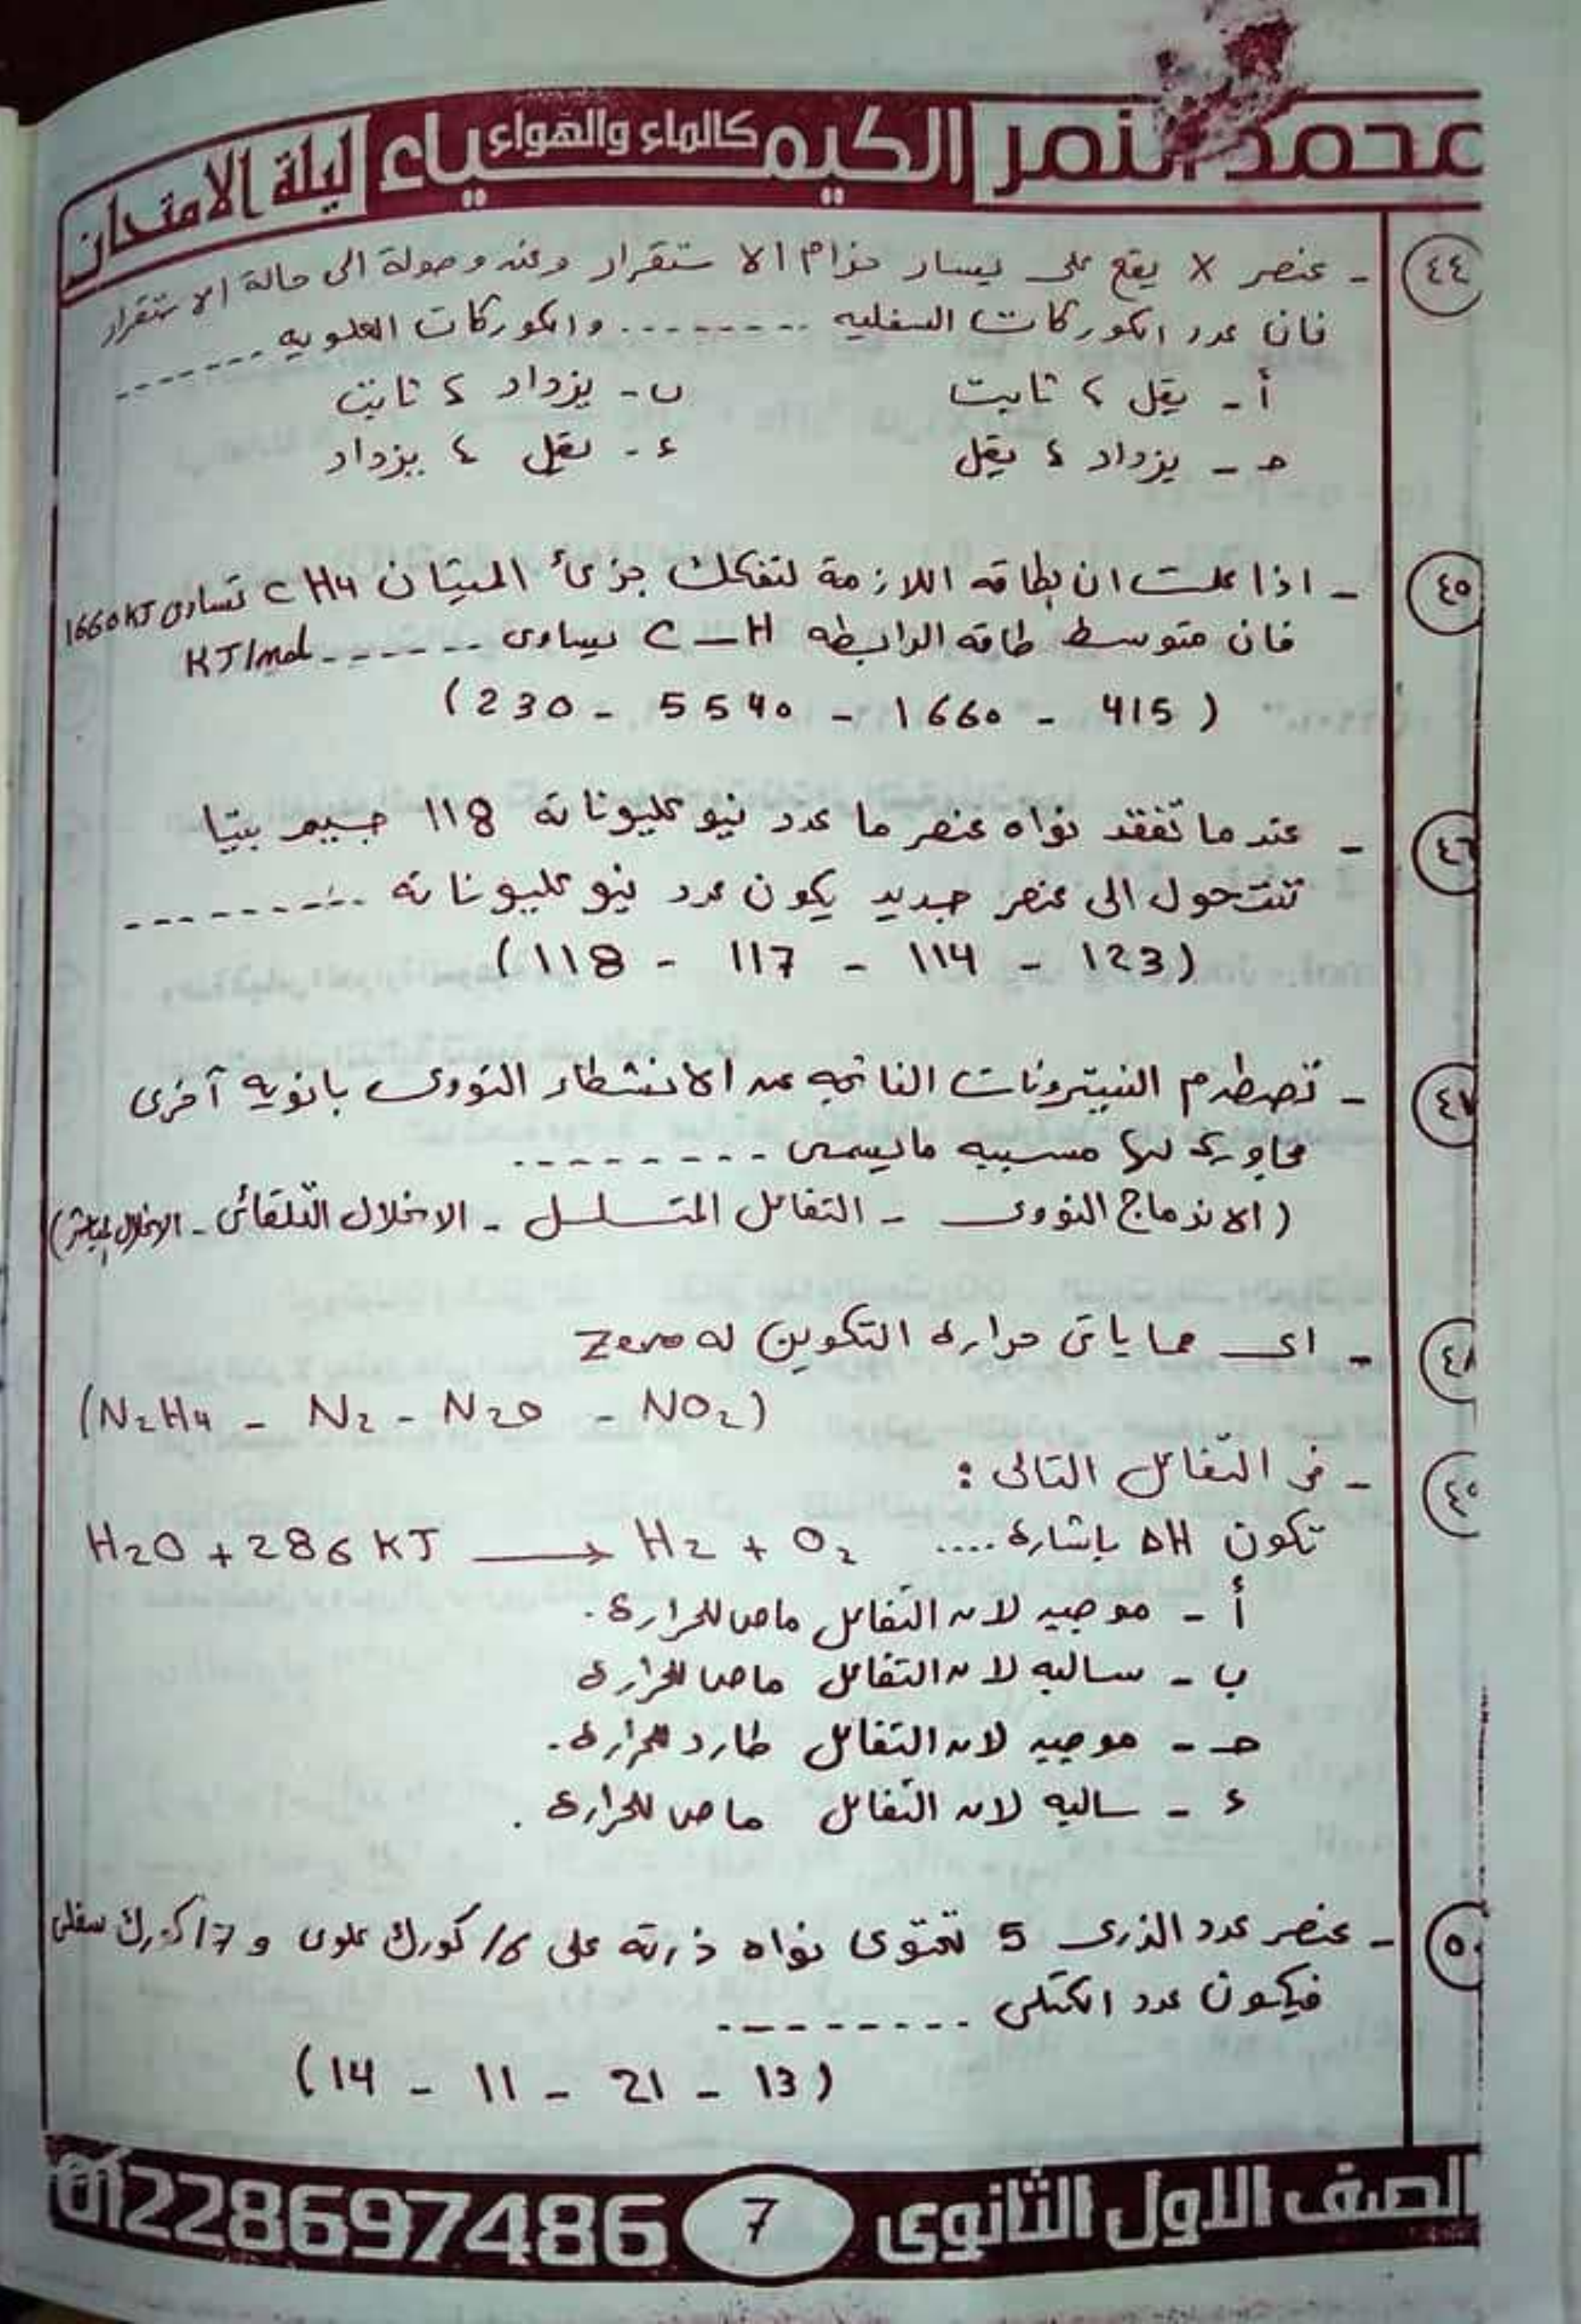 محمد النمر الكيمياء كالماء والهواء ليلة الامتحان
٤٤ - عنصر X يقع على يسار حزام الاستقرار وعند وصولة الى حالة الاستقرار
فان عدد الكوركات السفليه -------- والكوركات العلويه -------
أ - يقل ، ثابت ب - يزداد ، ثابت
حـ - يزداد ، يقل ء - يقل ، يزداد
٤٥ - اذا علمت ان الطاقه اللازمة لتفكك جزئ الميثان CH4 تساوى 1660KJ
فان متوسط طاقه الرابطه C-H يساوى ------- KJ/mol
(230 - 5540 - 1660 - 415)
٤٦ - عندما تفقد نواه عنصر ما عدد نيوكليوناته 118 جسيم بيتا
تتحول الى عنصر جديد يكون عدد نيوكليوناته ---------
(118 - 117 - 114 - 123)
٤٧ - تصطدم النيترونات الناتجه عن الانشطار النووى بانويه آخرى
مجاورة لها مسببه مايسمى --------
(الاندماج النووى - التفاعل المتسلسل - الانحلال التلقائى - الانحلال المباشر)
٤٨ - اى مماياتى حراره التكوين له Zero
(N2H4 - N2 - N2O - NO2)
٤٩ - فى التفاعل التالى :
تكون ΔH باشارة .... H2O + 286 KJ ⟶ H2 + O2
أ - موجبه لان التفاعل ماص للحرارة .
ب - سالبه لان التفاعل ماص للحرارة
حـ - موجبه لان التفاعل طارد للحرارة .
ء - سالبه لان التفاعل ماص للحرارة .
٥٠ - عنصر عدد الذرى 5 تحتوى نواه ذرته على 16 كورك علوى و 17 كورك سفلى
فيكون عدد الكتلى ---------
(14 - 11 - 21 - 13)
الصف الاول الثانوى 7 01228697486